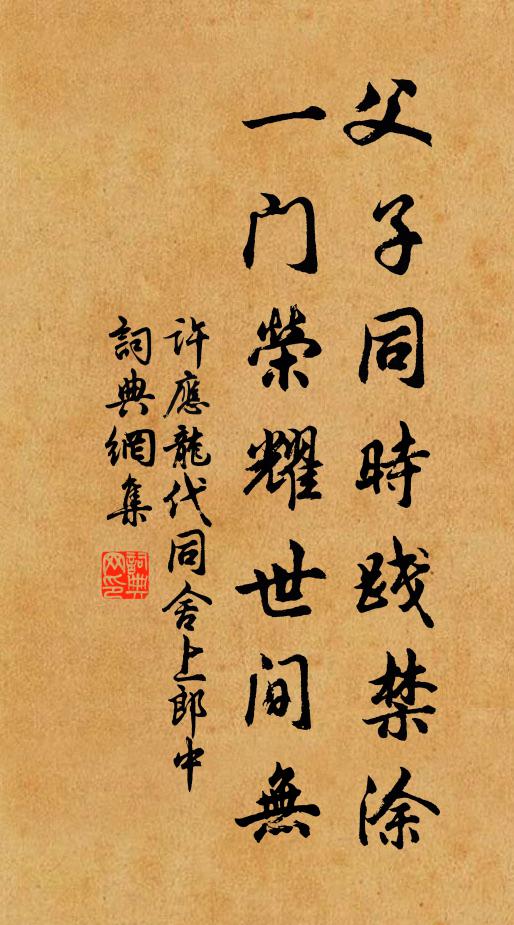 父子同時踐禁涂
一門榮耀世間無
許應龍代同舍上郎中
詞典網集
詞典网印